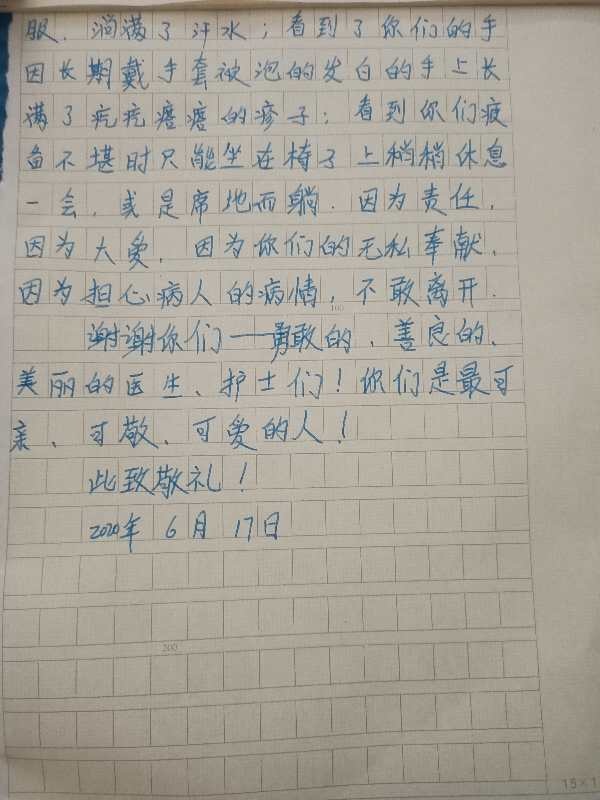 服、淌满了汗水；看到了你们的手
因长期戴手套被泡的发白的手上长
满了疙疙瘩瘩的疹子；看到你们疲
惫不堪时只能坐在椅子上稍稍休息
一会，或是席地而躺．因为责任，
因为大爱，因为你们的无私奉献，
因为担心病人的病情，不敢离开．
100
谢谢你们——勇敢的、善良的、
美丽的医生、护士们！你们是最可
亲、可敬、可爱的人！
此致敬礼！
2020年 6月 17日
200
15×1